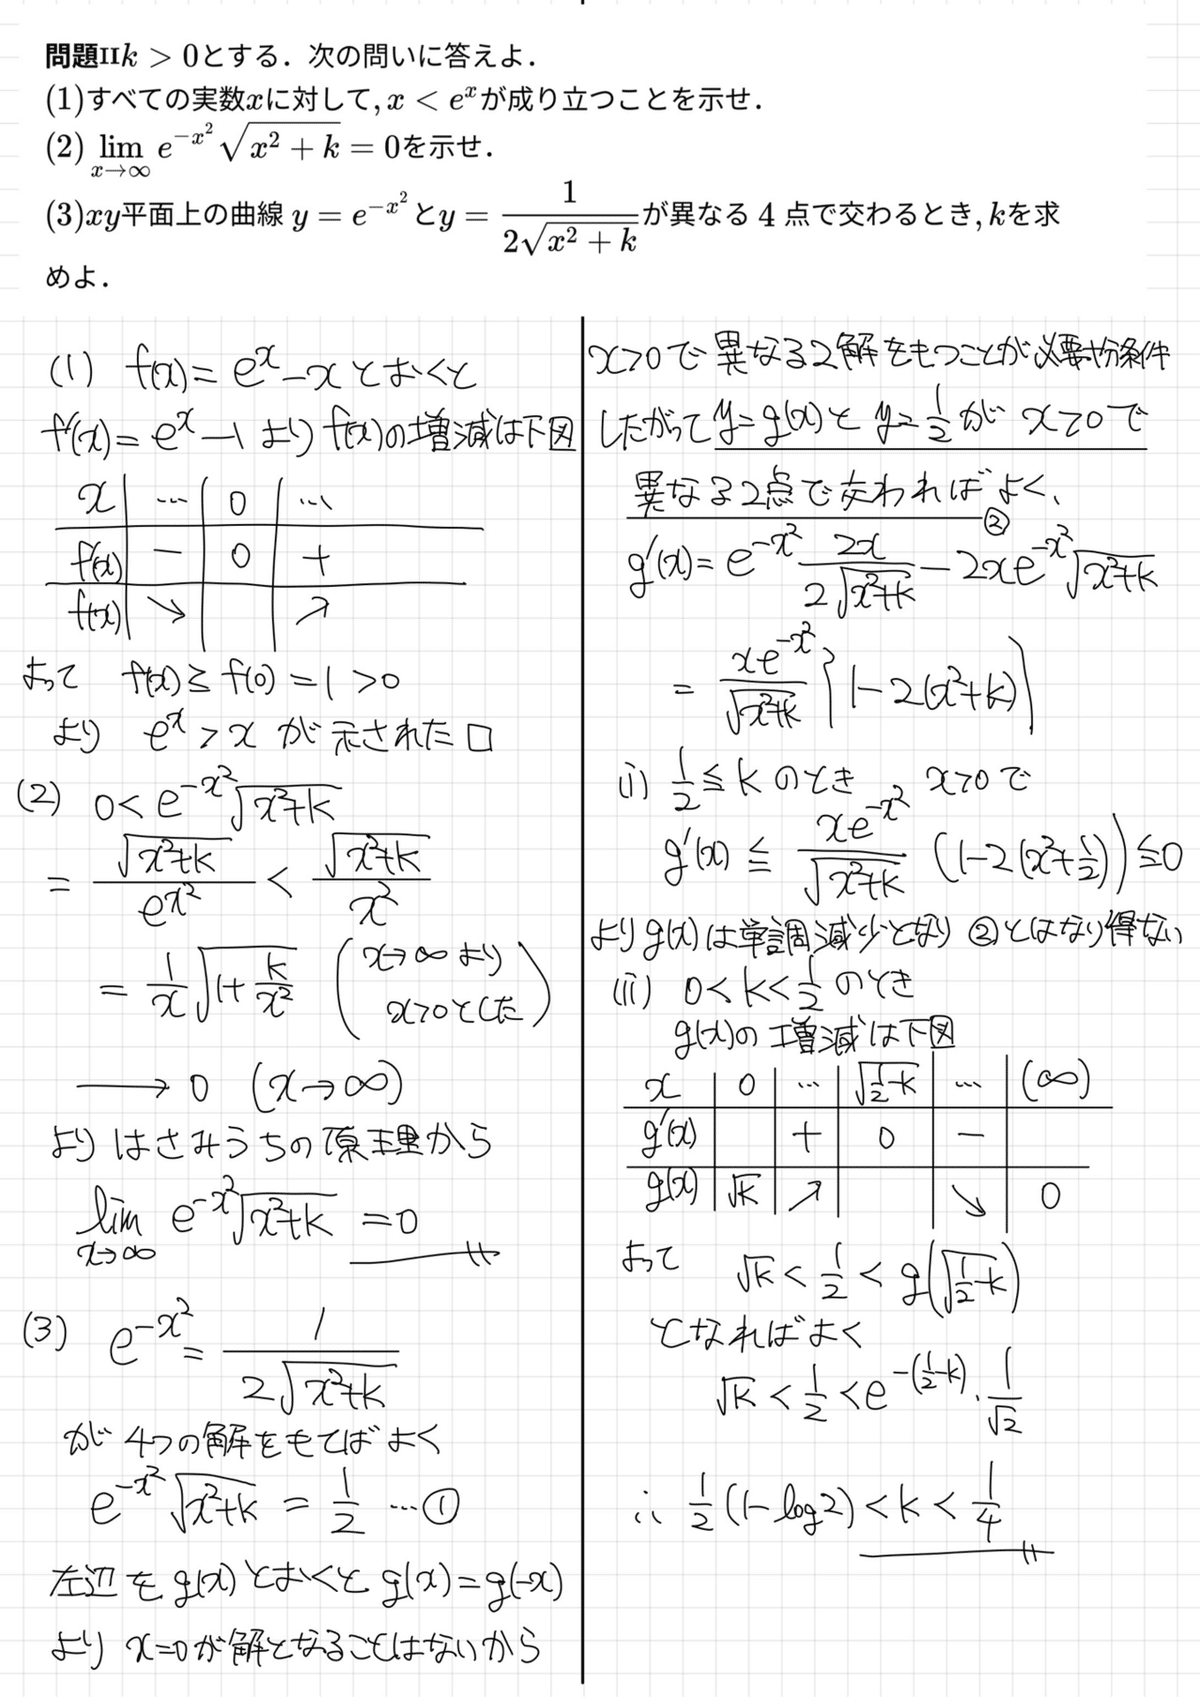 問題II k > 0とする．次の問いに答えよ．
(1)すべての実数xに対して, x < e^xが成り立つことを示せ．
(2) lim_{x→∞} e^{-x^2} √(x^2 + k) = 0を示せ．
(3)xy平面上の曲線 y = e^{-x^2} とy = 1/(2√(x^2 + k)) が異なる 4 点で交わるとき, kを求
めよ．
(1) f(x) = e^x - x とおくと
f'(x) = e^x - 1 より f(x)の増減は下図
x | … | 0 | …
f'(x) | - | 0 | +
f(x) | ↘ | | ↗
よって f(x) ≧ f(0) = 1 > 0
より e^x > x が示された □
(2) 0 < e^{-x^2} √(x^2+k)
= √(x^2+k)/e^{x^2} < √(x^2+k)/x^2
= 1/x √(1+k/x^2) (x→∞より x>0とした)
→ 0 (x→∞)
より はさみうちの原理から
lim_{x→∞} e^{-x^2} √(x^2+k) = 0
(3) e^{-x^2} = 1/(2√(x^2+k))
が 4つの解をもてばよく
e^{-x^2} √(x^2+k) = 1/2 …①
左辺を g(x) とおくと g(x) = g(-x)
より x=0 が解となることはないから
x>0で異なる2解をもつことが必要十分条件
したがって y=g(x) と y=1/2 が x>0で
異なる2点で交わればよく、②
g'(x) = e^{-x^2} 2x/(2√(x^2+k)) - 2xe^{-x^2} √(x^2+k)
= xe^{-x^2}/√(x^2+k) {1-2(x^2+k)}
(i) 1/2 ≦ k のとき x>0で
g'(x) ≦ xe^{-x^2}/√(x^2+k) (1-2(x^2+1/2)) ≦ 0
より g(x) は単調減少となり ②とはなり得ない
(ii) 0<k<1/2 のとき
g(x)の増減は下図
x | 0 | … | √(1/2-k) | … | (∞)
g'(x) | | + | 0 | - |
g(x) | √k | ↗ | | ↘ | 0
よって √k < 1/2 < g(√(1/2-k))
となればよく
√k < 1/2 < e^{-(1/2-k)}・1/√2
∴ 1/2 (1-log2) < k < 1/4